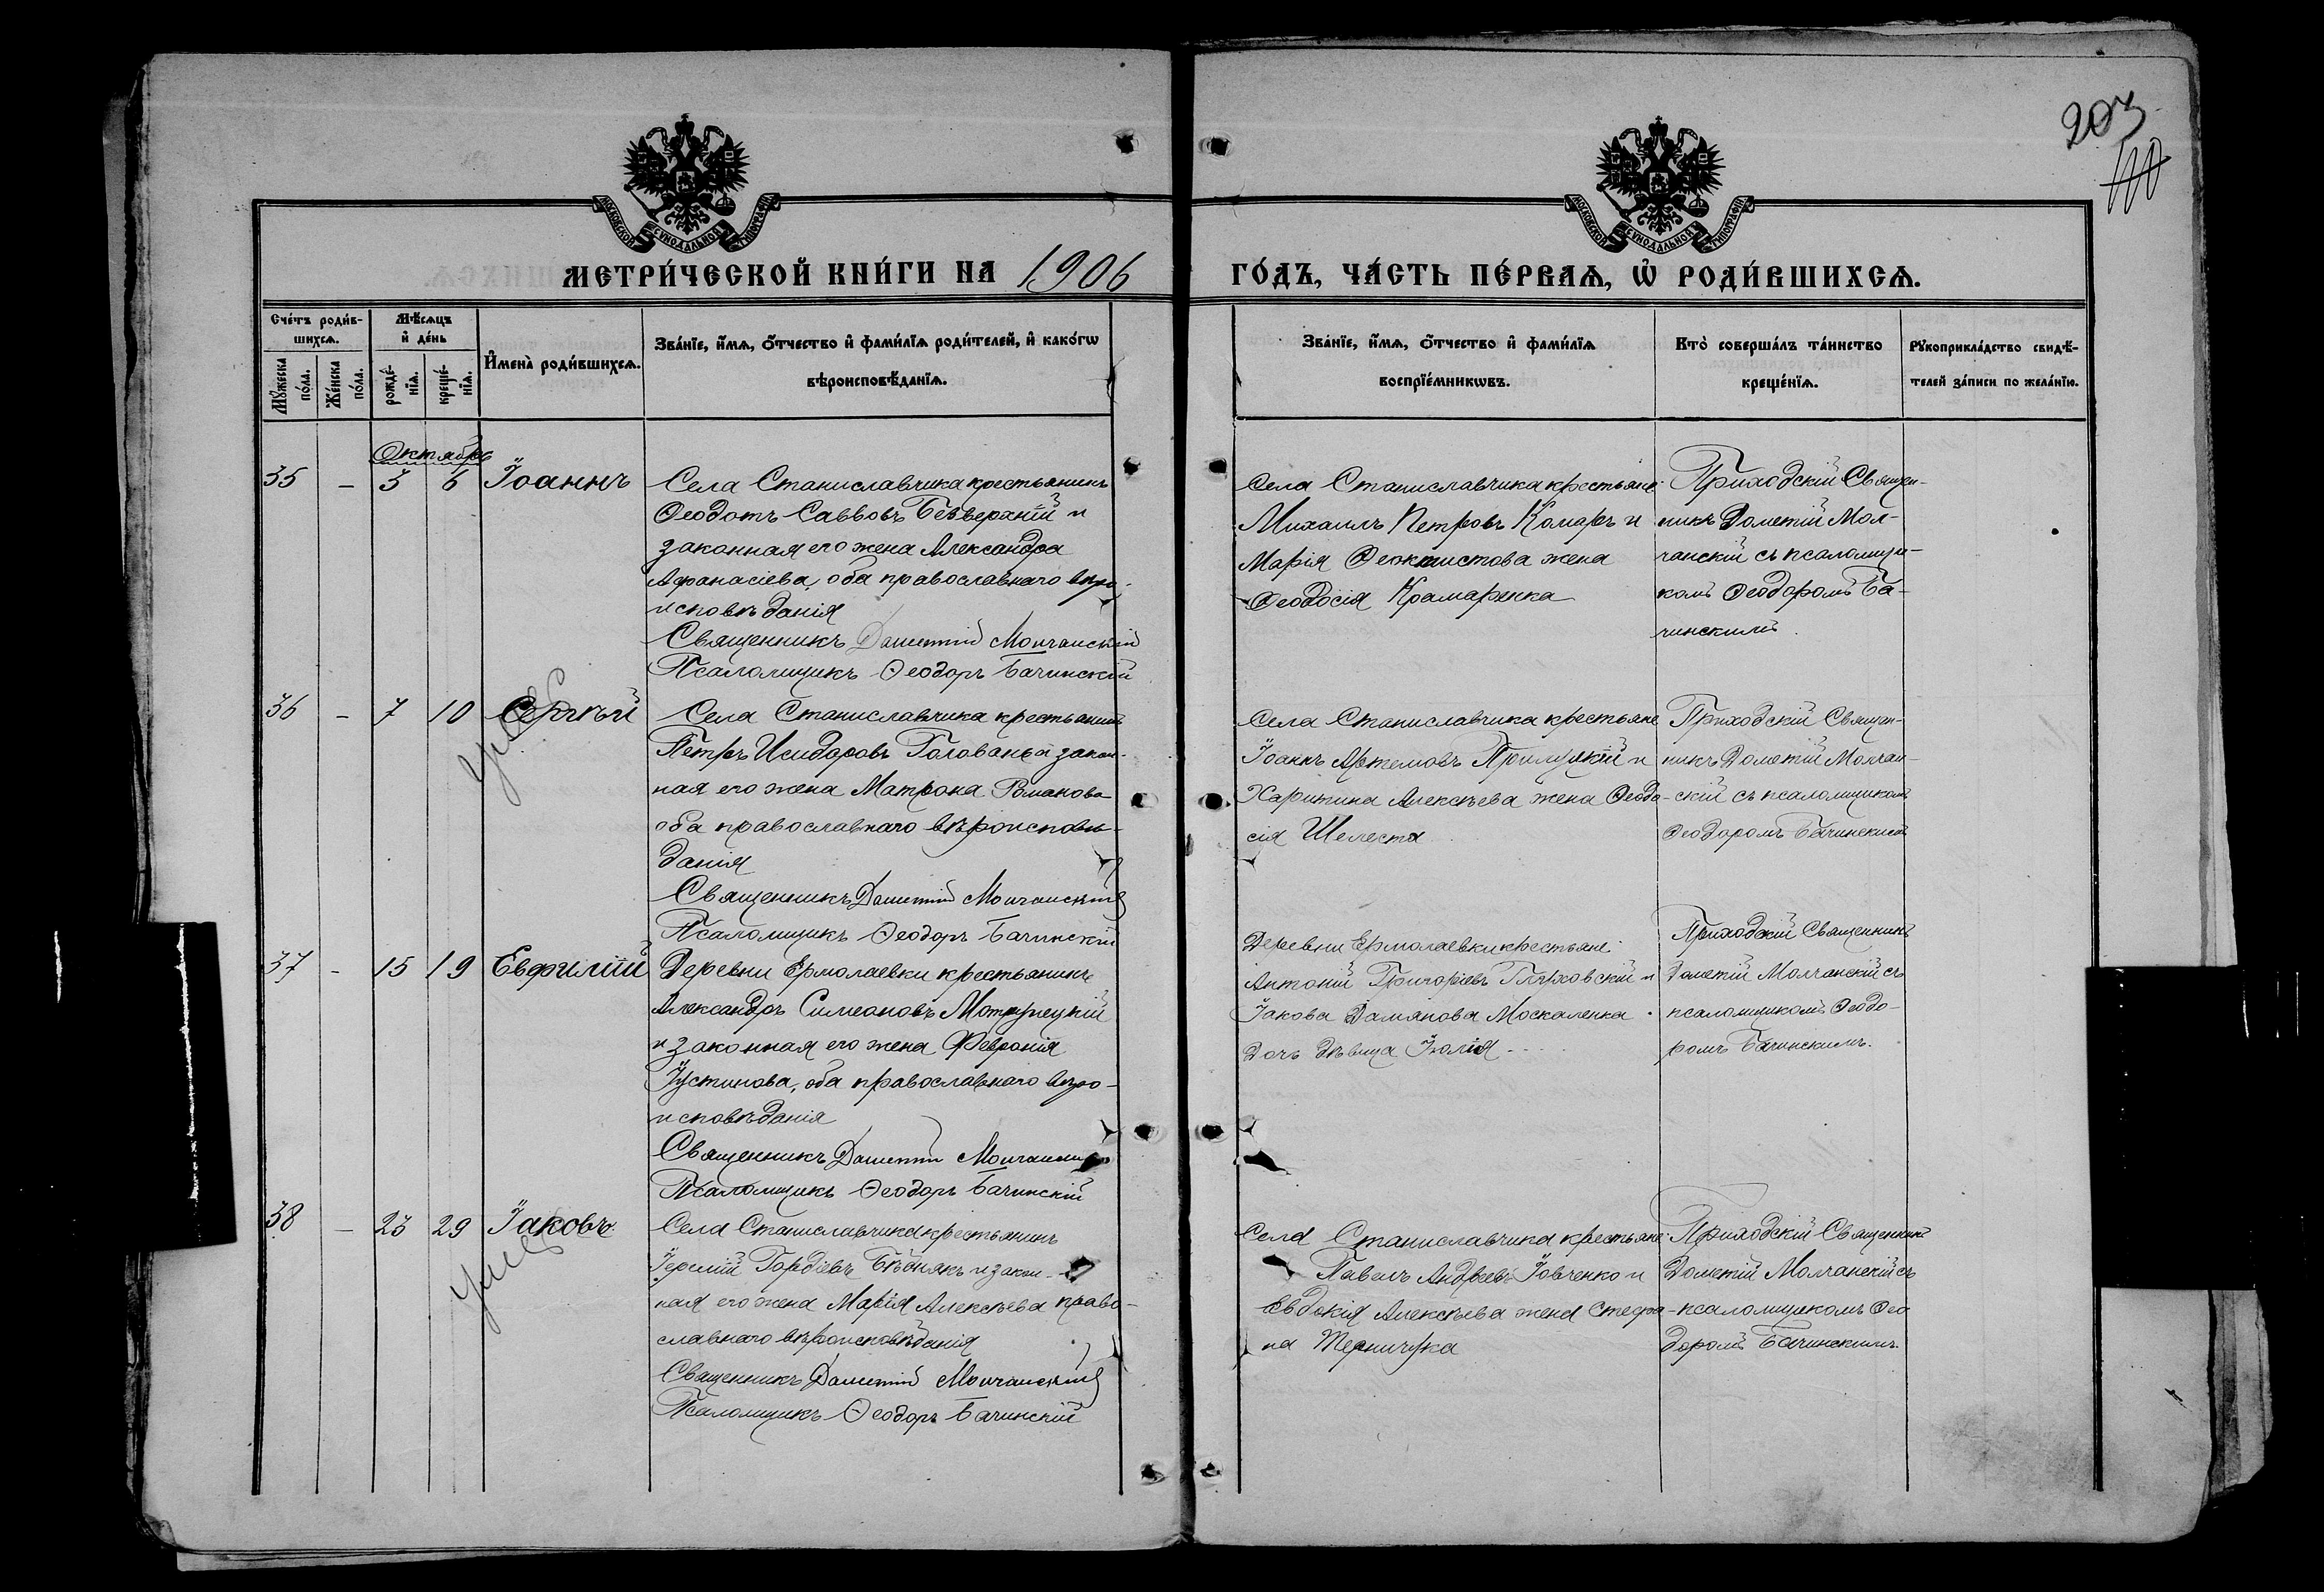 203
110
МОСКОВСКОЙ СѴНОДАЛЬНОЙ ТИПОГРАФІИ
МОСКОВСКОЙ СѴНОДАЛЬНОЙ ТИПОГРАФІИ
МЕТРИ́ЧЕСКОЙ КНИ́ГИ НА 1906 ГО́ДЪ, ЧА́СТЬ ПЕ́РВАѦ, Ѽ РОДИ́ВШИХСѦ.
Сче́тъ роди́в-
шихсѧ.
Мꙋ́жеска
по́ла.
Же́нска
по́ла.
Мѣ́сѧцъ
и҆ де́нь
рожде́-
нїѧ.
креще́-
нїѧ.
И҆мена̀ роди́вшихсѧ.
Зва́нїе, и҆́мѧ, ѻ҆́тчество и҆ фами́лїѧ роди́телей, и҆ како́гѡ
вѣроисповѣ́данїѧ.
Зва́нїе, и҆́мѧ, ѻ҆́тчество и҆ фами́лїѧ
воспрїе́мникѡвъ.
Кто̀ соверша́лъ та́инство
креще́нїѧ.
Рꙋкоприкла́дство свидѣ́-
телей за́писи по жела́нїю.
Октябрь
35 – 5 6 Іоаннъ
Села Станиславчика крестьянинъ
Ѳеодотъ Саввовъ Безверхній и
законная его жена Александра
Афанасіева, оба православнаго вѣро-
исповѣданія
Священникъ Дометій Молчанскій
Псаломщикъ Ѳеодоръ Бачинскій
Села Станиславчика крестьяне:
Михаилъ Петровъ Комаръ и
Марія Ѳеоктистова жена
Ѳеодосія Крамаренка
Приходскій Священ-
никъ Дометій Мол-
чанскій съ псаломщи-
комъ Ѳеодоромъ Ба-
чинскимъ.
36 – 7 10 Сергѣй
Села Станиславчика крестьянинъ
Петръ Исидоровъ Голованъ и закон-
ная его жена Матрона Романова
оба православнаго вѣроисповѣ-
данія
Священникъ Дометій Молчанскій
Псаломщикъ Ѳеодоръ Бачинскій
Села Станиславчика крестьяне
Іоаннъ Артемовъ Прилуцкій и
Харитина Алексѣева жена Ѳеодо-
сія Шелеста
Приходскій Священ-
никъ Дометій Молчан-
скій съ псаломщикомъ
Ѳеодоромъ Бачинскимъ
37 – 15 19 Евфимій
Деревни Ермолаевки крестьянинъ
Александръ Симеоновъ
и законная его жена Февронія
Іустинова, оба православнаго вѣро-
исповѣданія
Священникъ Дометій Молчанскій
Псаломщикъ Ѳеодоръ Бачинскій
Деревни Ермолаевки крестьяне:
Антоній Григоріевъ Гляховскій и
Іакова Даміанова Москаленка
дочь дѣвица Іюлія
Приходскій Священникъ
Дометій Молчанскій съ
псаломщикомъ Ѳеодо-
ромъ Бачинскимъ.
38 – 23 29 Іаковъ
Села Станиславчика крестьянинъ
Гордіевъ Бѣднякъ и закон-
ная его жена Марія Алексѣева право-
славнаго вѣроисповѣданія
Священникъ Дометій Молчанскій
Псаломщикъ Ѳеодоръ Бачинскій
Села Станиславчика крестьяне:
Павелъ Андреевъ Іовченко и
Евдокія Алексѣева жена Стефа-
на Терничука
Приходскій Священникъ
Дометій Молчанскій съ
псаломщикомъ Ѳео
доромъ Бачинскимъ.